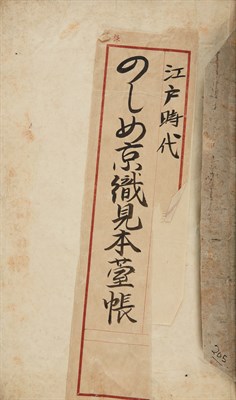 江戸時代
のしめ京織見本臺帳
205